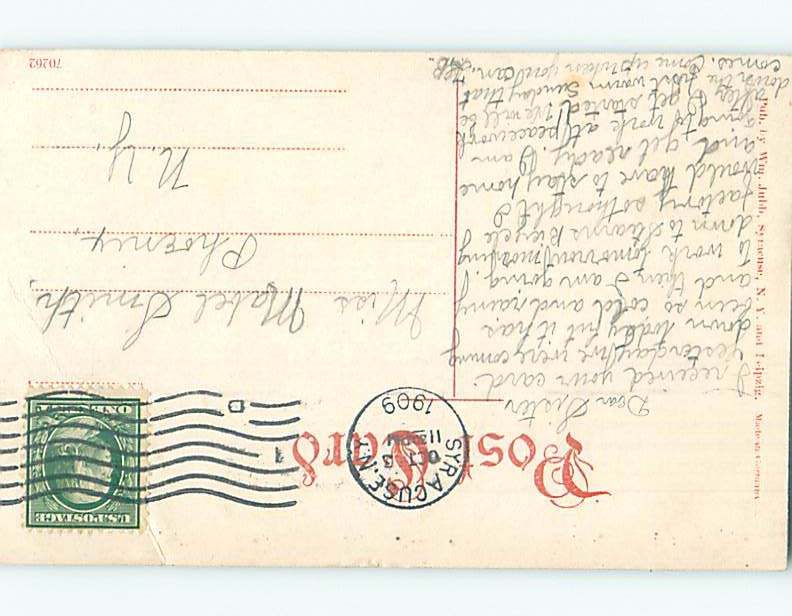 Post Card
SYRACUSE, N.Y.
OCT 3
1909
1
D
U.S. POSTAGE
ONE CENT
Dear Sister
I received your card
yesterday we were coming
down today but it has
been so cold and rainy
and then I am going
to work tomorrow morning
down to Stearns Bicycle
factory so thought I
would have to stay home
and get ready. I am
going to work at piecework
after I get started. We will be
down the first warm Sunday that
comes. Come up when you can.
Miss Mabel Smith,
Phoenix,
N.Y.
Pub. by Wm. Jubb, Syracuse, N. Y. and Leipzig. Made in Germany
70262